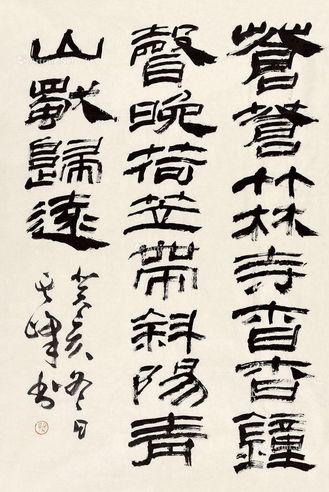 蒼蒼竹林寺杳杳鐘
聲晚荷笠帶斜陽青
山獨歸遠
癸亥冬日
其峰书